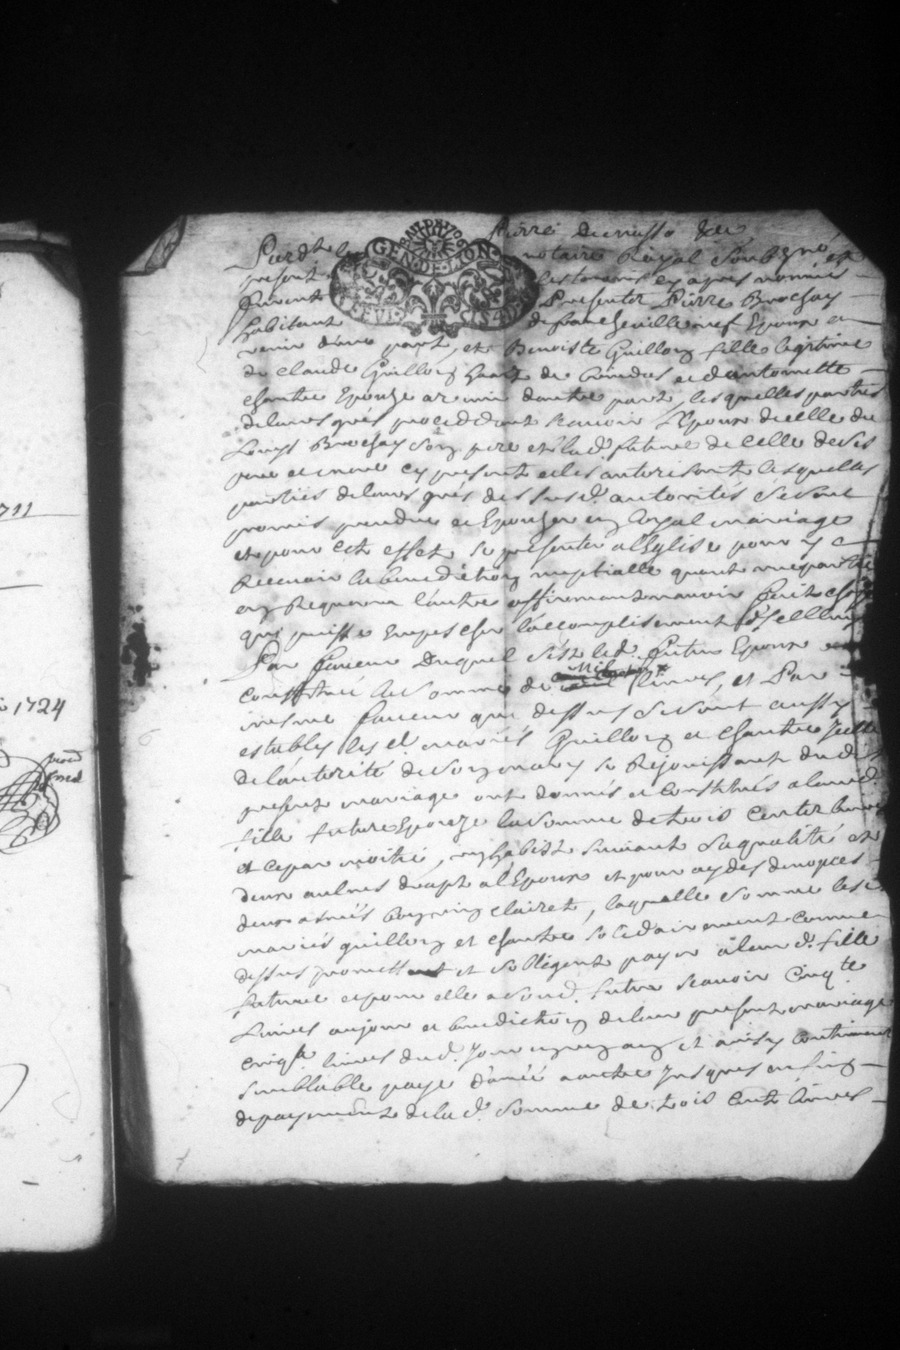 711
1724
GEN. DE LYON
Pierre
Pardt le notaire Royal Soubzné, et
present les temoins cy apres nommés
furent Presentez Pierre Brochay
habitant de francheville nef Epoux a
venir d'une part, et Benoiste Guilloy fille legitime
de Claude Guilloy de et d'antoinette
chantre Epouze avenir d'autre part, lesquelles parties
de leurs grés proceddant scavoir l'Epoux de celle de
Louys Brochay son pere et lad. future de celle de ses
pere et mere cy presents et les autorisants lesquelles
parties de leurs grés des susd. autorités se sont
promis prendre et Epouzer en loyal mariage
et pour cet effet se presenter a l'Eglise pour y
Recevoir la benediction nuptialle quand une partie
en Requerra l'autre affirmant n'avoir fait chose
qui puisse empescher l'accomplisement d'Jcelluy
Par faveur Duquel s'est led. futur Epoux
constitué la somme de Mil livres, et Par
mesme faveur que dessus se sont aussy
establys les d. mariés Guilloy et chantre Jcelle
de l'autorité de son mary se Rejouissant du d.
present mariage ont donnés et constitués a leurd.
fille future Epouze la somme de trois centz livres
et ce par moitié, un habist suivant sa qualité et
deux aulnes drapt a l'Epoux et pour aydes de nopces
deux asnés bon vin clairet, laquelle somme lesd.
mariés guilloy et chantre solidairement comme
dessus promettent et s'obligent payer a leur d. fille
future et pour elle a sond. futur scavoir Cinqte
Livres au jour et benediction de leur present mariage
cinqte livres dud. jour en un an et ainsy continuer
semblable paye d'année a autre jusques en fin
de payement de la d. somme de trois centz livres